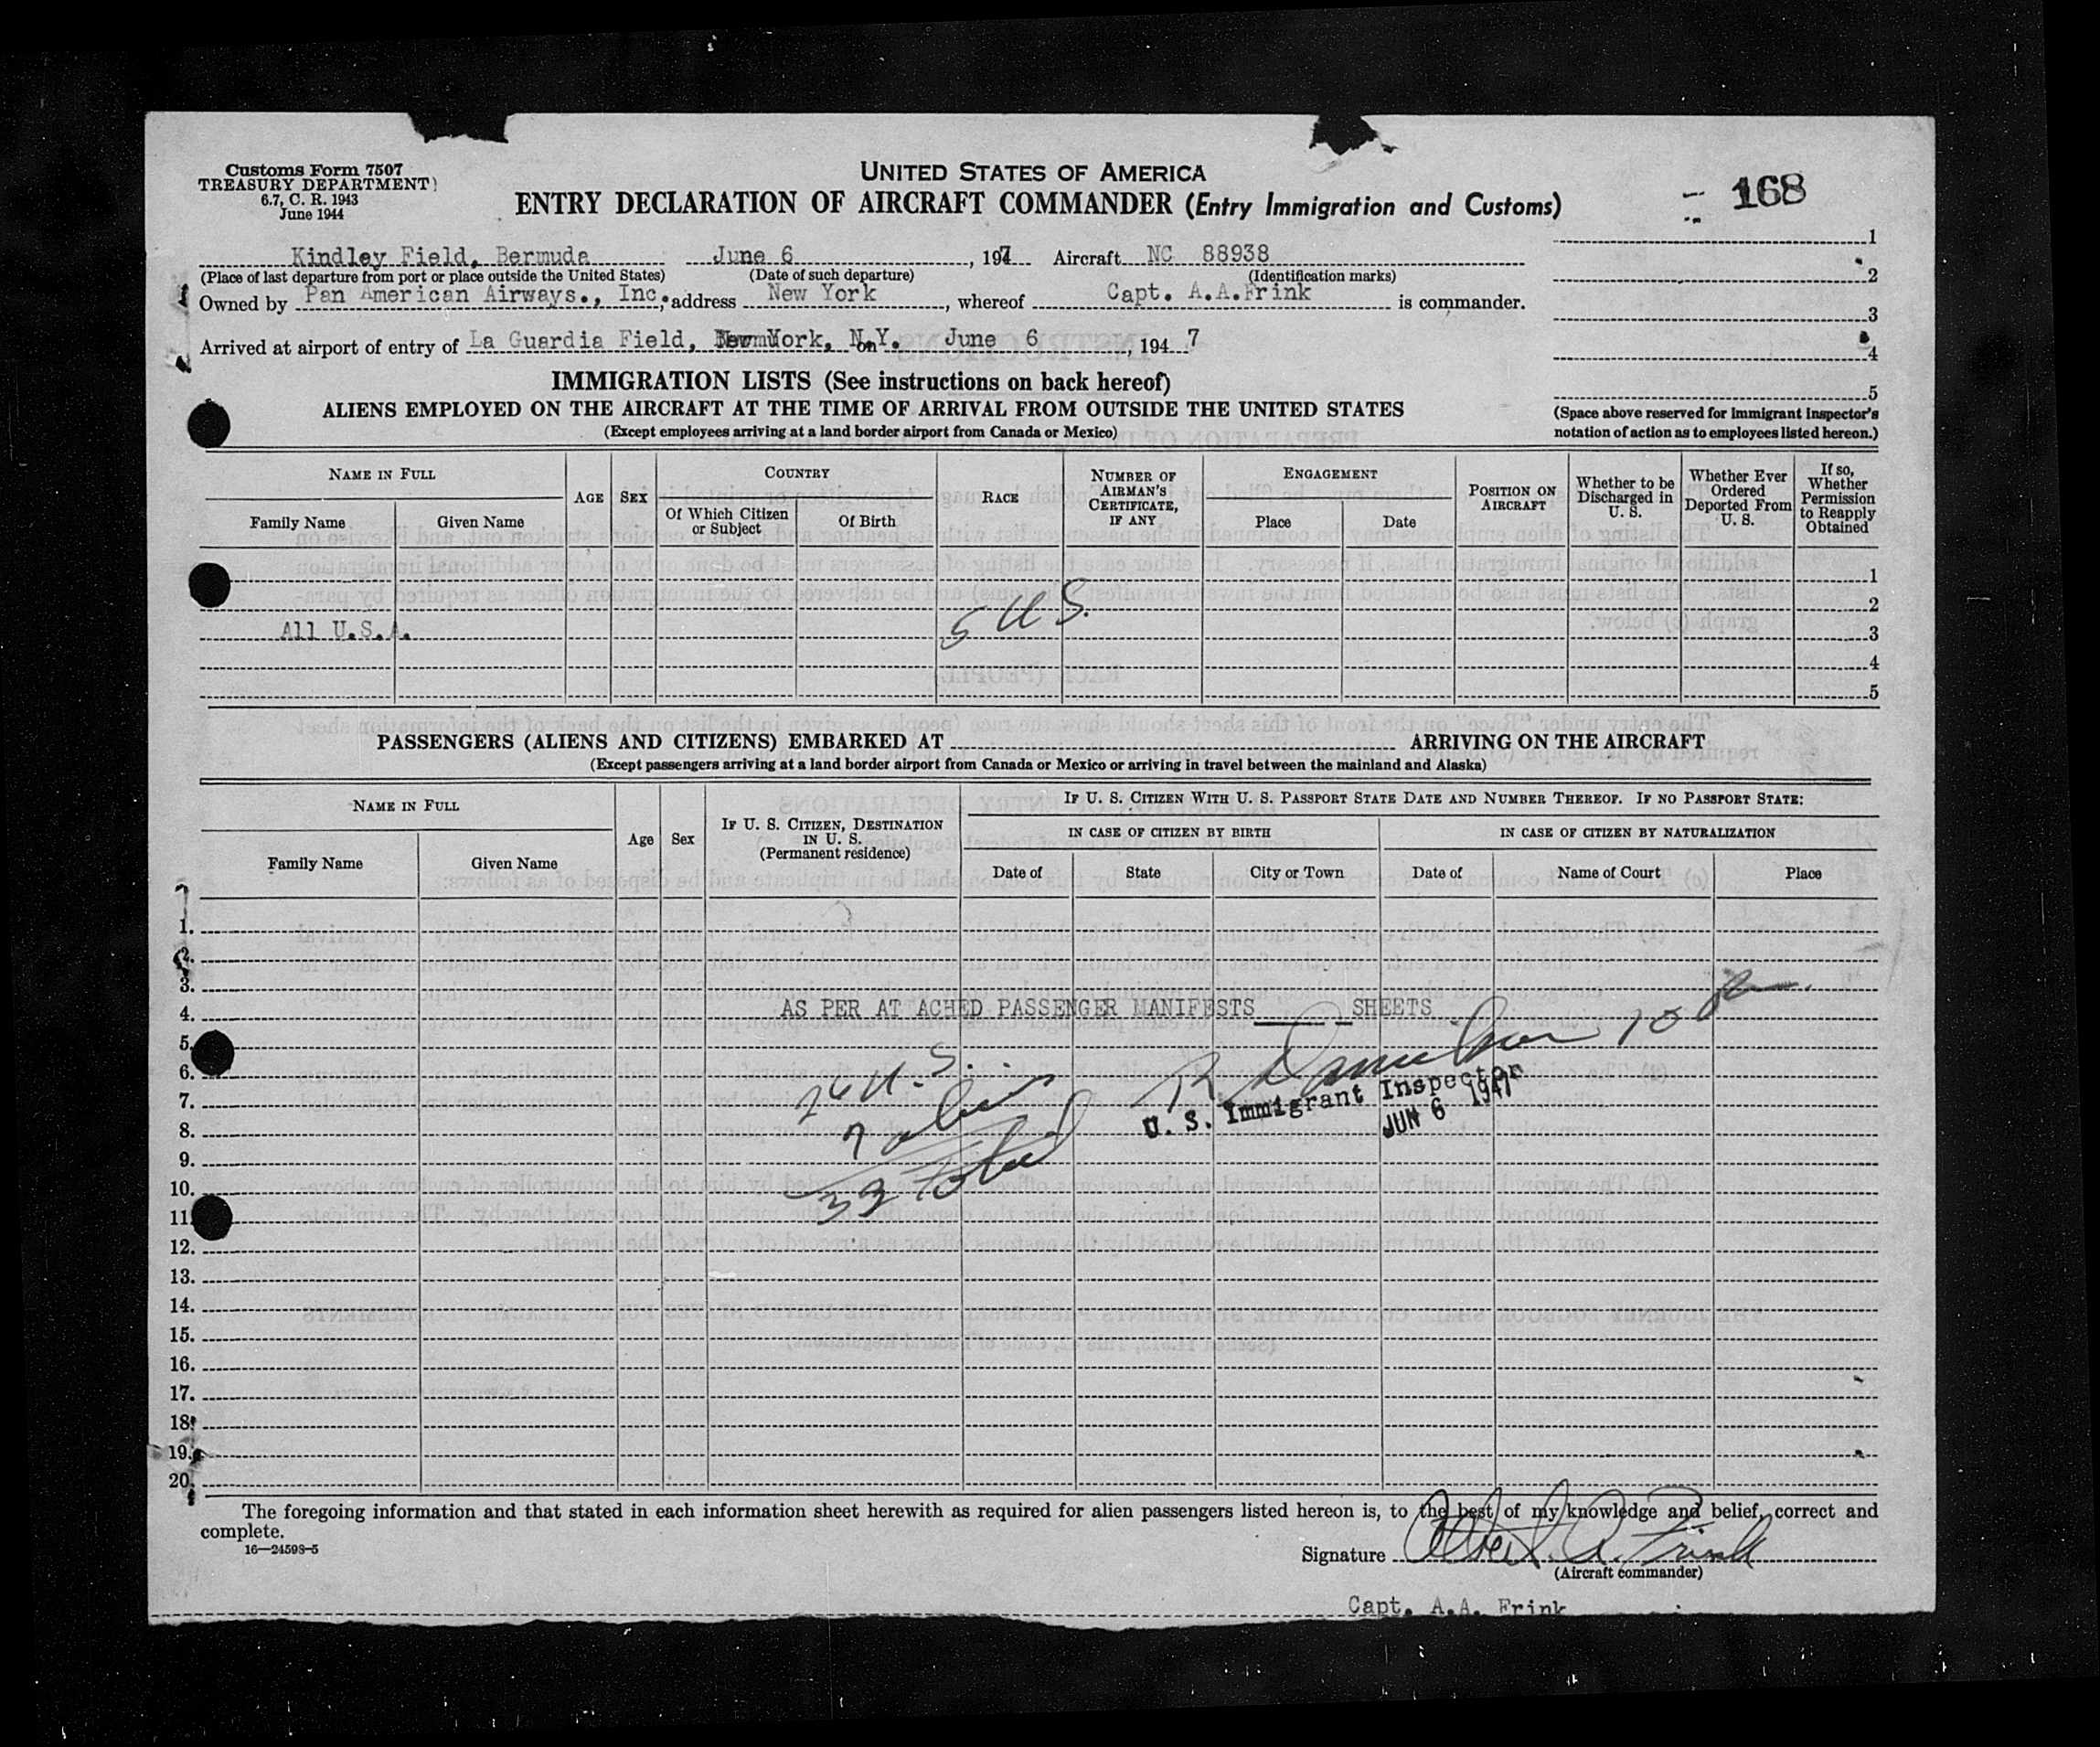 Customs Form 7507
TREASURY DEPARTMENT
6.7, C. R. 1943
June 1944
UNITED STATES OF AMERICA
ENTRY DECLARATION OF AIRCRAFT COMMANDER (Entry Immigration and Customs)
168
Kindley Field, Bermuda June 6, 1947 Aircraft NC 88938
(Place of last departure from port or place outside the United States) (Date of such departure) (Identification marks)
Owned by Pan American Airways., Inc., address New York, whereof Capt. A.A.Frink is commander.
Arrived at airport of entry of La Guardia Field, New York, N.Y. on June 6, 194 7
1
2
3
4
5
(Space above reserved for Immigrant Inspector's
notation of action as to employees listed hereon.)
IMMIGRATION LISTS (See instructions on back hereof)
ALIENS EMPLOYED ON THE AIRCRAFT AT THE TIME OF ARRIVAL FROM OUTSIDE THE UNITED STATES
(Except employees arriving at a land border airport from Canada or Mexico)
NAME IN FULL
Family Name Given Name
AGE
SEX
COUNTRY
Of Which Citizen or Subject
Of Birth
RACE
NUMBER OF AIRMAN'S CERTIFICATE, IF ANY
ENGAGEMENT
Place Date
POSITION ON AIRCRAFT
Whether to be Discharged in U. S.
Whether Ever Ordered Deported From U. S.
If so, Whether Permission to Reapply Obtained
1
2
All U.S.A. 5 U S. 3
4
5
PASSENGERS (ALIENS AND CITIZENS) EMBARKED AT ARRIVING ON THE AIRCRAFT
(Except passengers arriving at a land border airport from Canada or Mexico or arriving in travel between the mainland and Alaska)
NAME IN FULL
Family Name Given Name
Age
Sex
IF U. S. CITIZEN, DESTINATION IN U. S.
(Permanent residence)
IF U. S. CITIZEN WITH U. S. PASSPORT STATE DATE AND NUMBER THEREOF. IF NO PASSPORT STATE:
IN CASE OF CITIZEN BY BIRTH IN CASE OF CITIZEN BY NATURALIZATION
Date of State City or Town Date of Name of Court Place
1.
2.
3.
4. AS PER AT ACHED PASSENGER MANIFESTS SHEETS
5.
6. 26 U.S.
7. 7 aliens
U. S. Immigrant Inspector
JUN 6 1947
8.
9.
10. 33 total
11.
12.
13.
14.
15.
16.
17.
18.
19.
20.
The foregoing information and that stated in each information sheet herewith as required for alien passengers listed hereon is, to the best of my knowledge and belief, correct and
complete.
16—24598-5
Signature Albert A. Frink
(Aircraft commander)
Capt. A.A. Frink